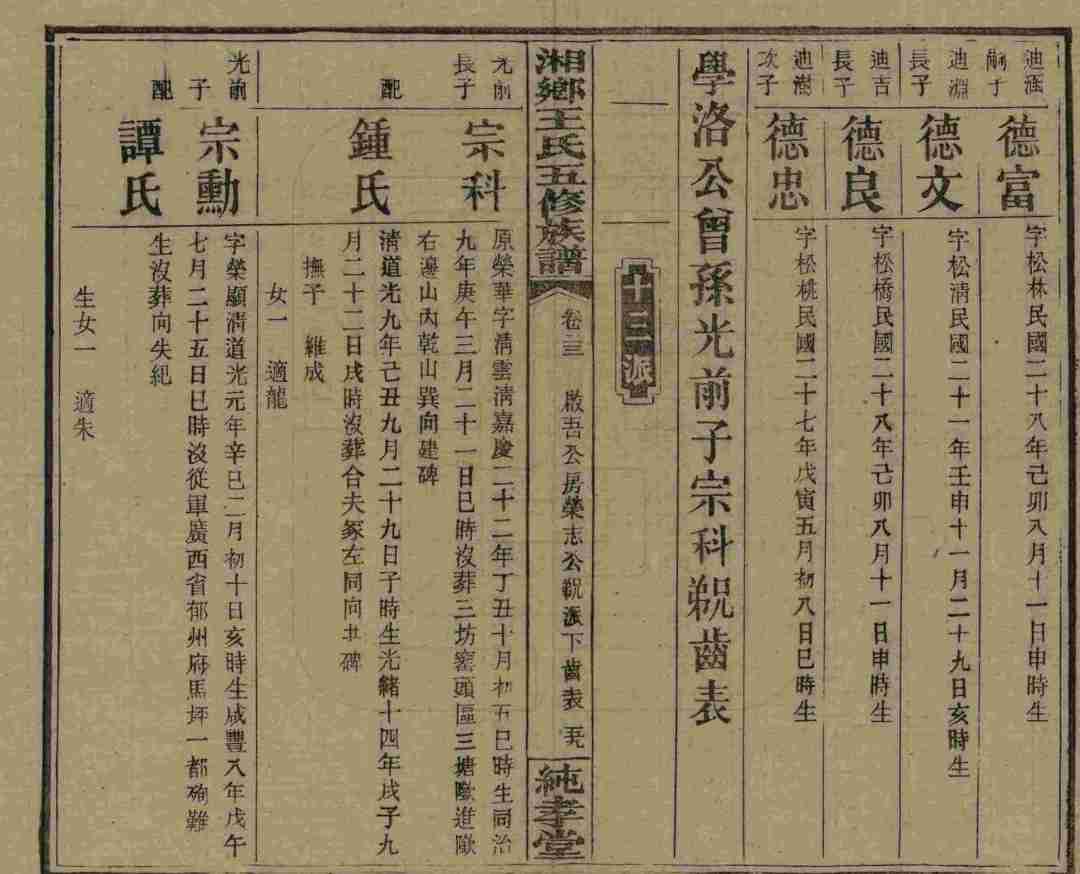 迪涵
嗣子
德富
字松林民國二十八年己卯八月十一日申時生
迪淵
長子
德文
字松淸民國二十一年壬申十一月二十九日亥時生
迪吉
長子
德良
字松橋民國二十八年己卯八月十一日申時生
迪澍
次子
德忠
字松桃民國二十七年戊寅五月初八日巳時生
學洛公曾孫光前子宗科覣齒表
十三派
湘鄉王氏五修族譜
啟吾公房榮志公覣派下齒表
純孝堂
光前
長子
宗科
原榮華字淸雲淸嘉慶二十二年丁丑十月初五巳時生同治
九年庚午三月二十一日巳時沒葬三坊窰頭區三塘歐進歐
右邊山內乾山巽向建碑
配
鍾氏
淸道光九年己丑九月二十九日子時生光緒十四年戊子九
月二十二日戌時沒葬合夫冢左同向共碑
撫子 維成
女一 適龍
光前
子
宗勳
字榮顯淸道光元年辛巳二月初十日亥時生咸豐八年戊午
七月二十五日巳時沒從軍廣西省郁州府馬坪一都殉難
配
譚氏
生沒葬向失紀
生女一 適朱